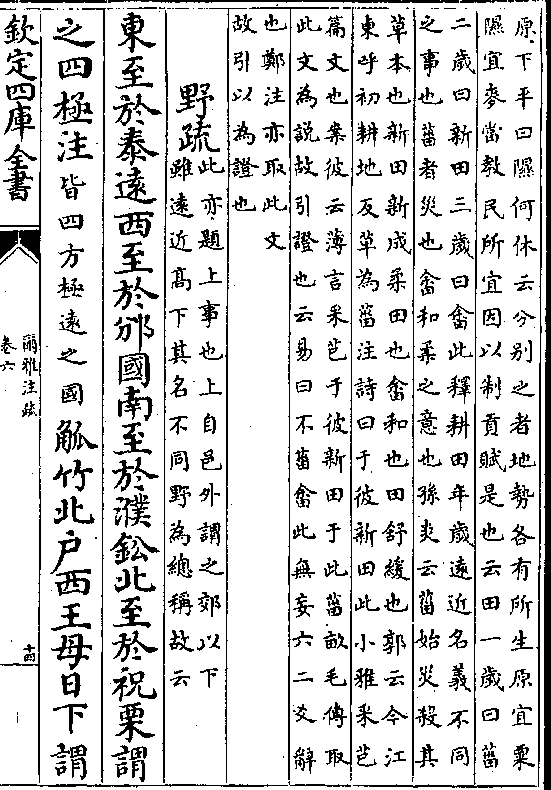 原下平曰隰何休云分别之者地勢各有所生原宜粟
隰宜麥當教民所宜因以制貢賦是也云田一歲曰菑
二歲曰新田三歲曰畬此釋耕田年歲遠近名義不同
之事也菑者災也畬和柔之意也孫炎云菑始災殺其
草木也新田新成柔田也畬和也田舒緩也郭云今江
東呼初耕地反草為菑注詩曰于彼新田此小雅采芑
篇文也案彼云薄言采芑于彼新田于此菑畝毛傳取
此文為說故引證也云易曰不菑畬此無妄六二爻辭
也鄭注亦取此文
故引以為證也
野疏此亦題上事也上自邑外謂之郊以下
雖遠近高下其名不同野為總稱故云
東至於泰遠西至於邠國南至於濮鈆北至於祝栗謂
之四極注皆四方極遠之國觚竹北户西王母日下謂
欽定四庫全書
爾雅注疏
卷六
十四